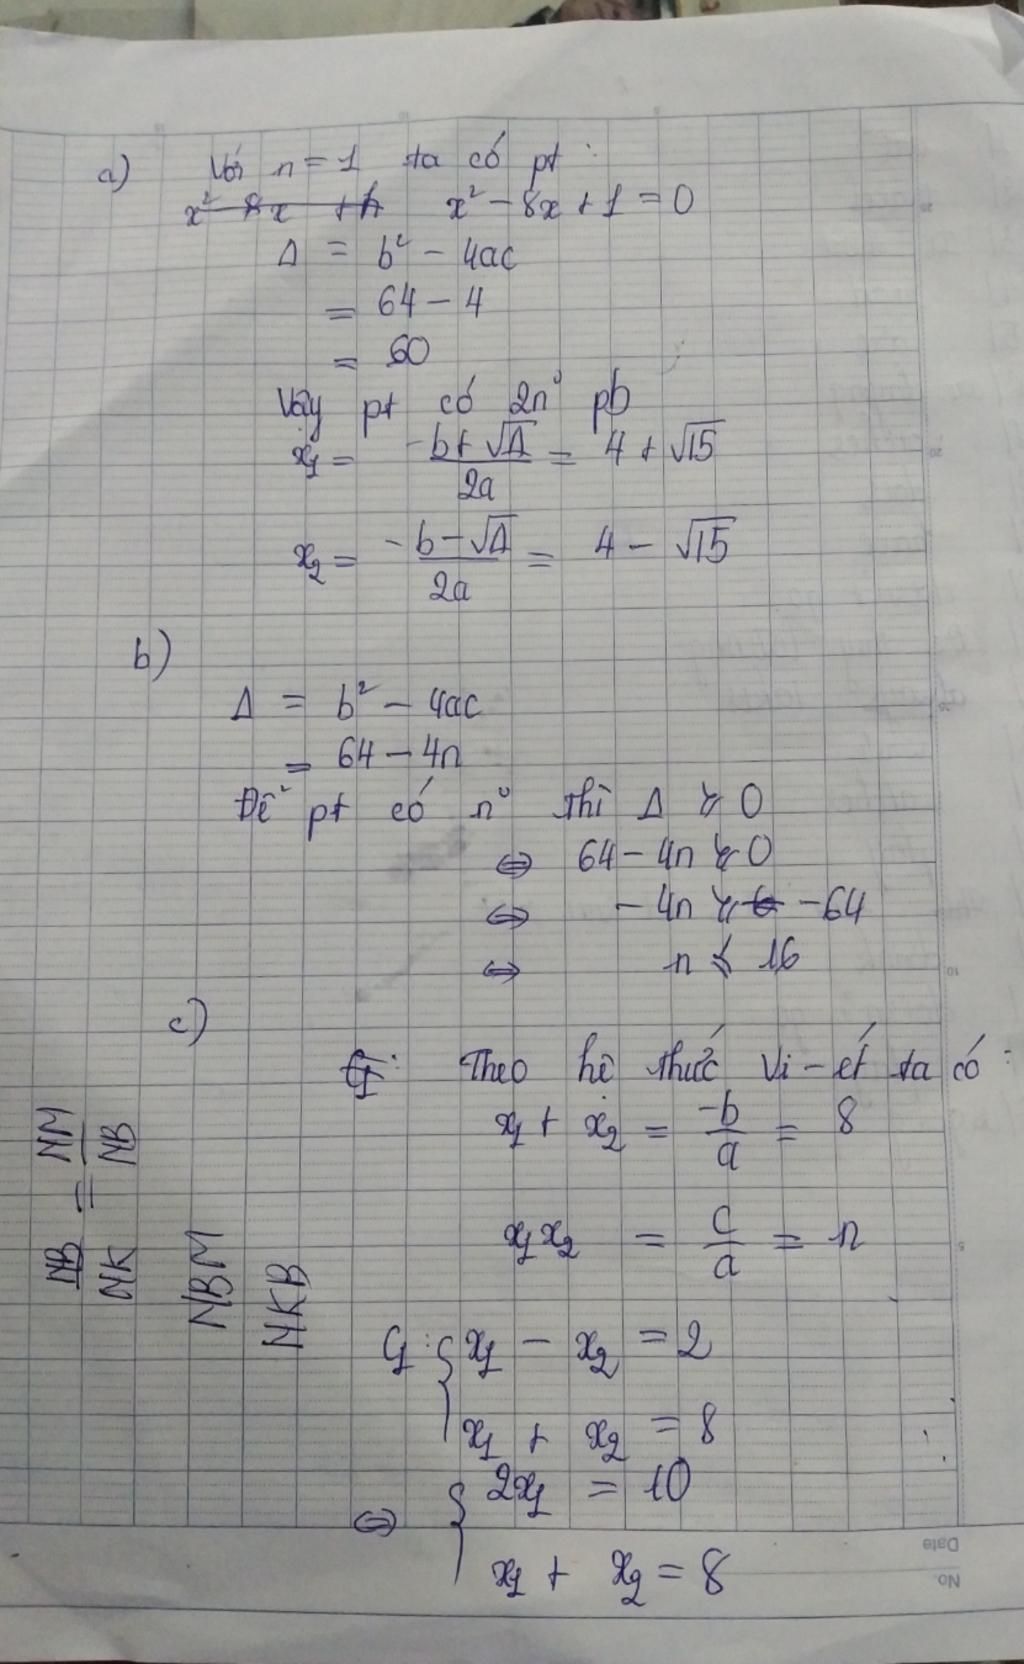 a) Với n = 1 ta có pt :
x² - 8x + 1 = 0
Δ = b² - 4ac
= 64 - 4
= 60
Vậy pt có 2n⁰ pb
x₁ = -b+√Δ / 2a = 4 + √15
x₂ = -b-√Δ / 2a = 4 - √15
b)
Δ = b² - 4ac
= 64 - 4n
Để pt có n⁰ thì Δ ≥ 0
⇔ 64 - 4n ≥ 0
⇔ - 4n ≥ -64
⇔ n ≤ 16
c)
Theo hệ thức Vi-ét ta có :
x₁ + x₂ = -b/a = 8
x₁x₂ = c/a = n
NB/NK = NM/NB
NBM
NKB
C₁ : { x₁ - x₂ = 2
x₁ + x₂ = 8
⇔ { 2x₁ = 10
x₁ + x₂ = 8
Date
No.